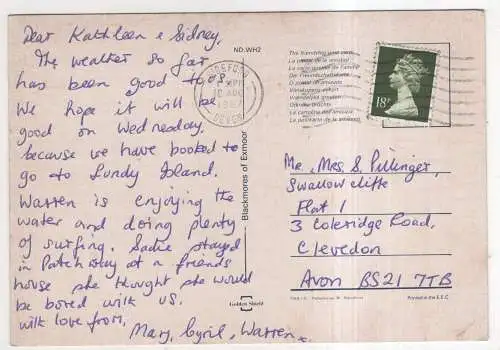 Dear Kathleen & Sidney,
The weather so far
has been good to us
We hope it will be
good on Wednesday,
because we have booked to
go to Lundy Island.
Warren is enjoying the
water and doing plenty
of surfing. Sadie stayed
in Patchway at a friends
house she thought she would
be bored with us.
with love from,
Mary, Cyril, Warren x
ND.WH2
BIDEFORD
DEVON
Blackmores of Exmoor
Golden Shield
The friendship post card
La carte postale de l'amitié
18P
Mr, Mrs S. Pillinger,
Swallowcliffe
Flat 1
3 Coleridge Road,
Clevedon
Avon BS21 7TB
Printed in the E.E.C